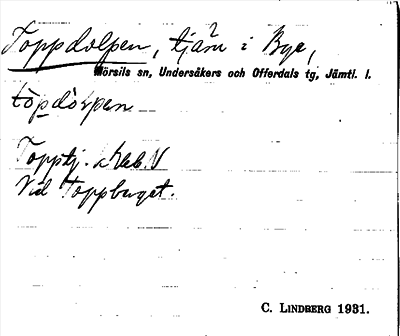 Toppdolpen, tjärn i Bye,
Mörsils sn, Undersåkers och Offerdals tg, Jämtl. l.
tòpdòlpen
Topptj.
Vid Toppbuget.
C. LINDBERG 1931.